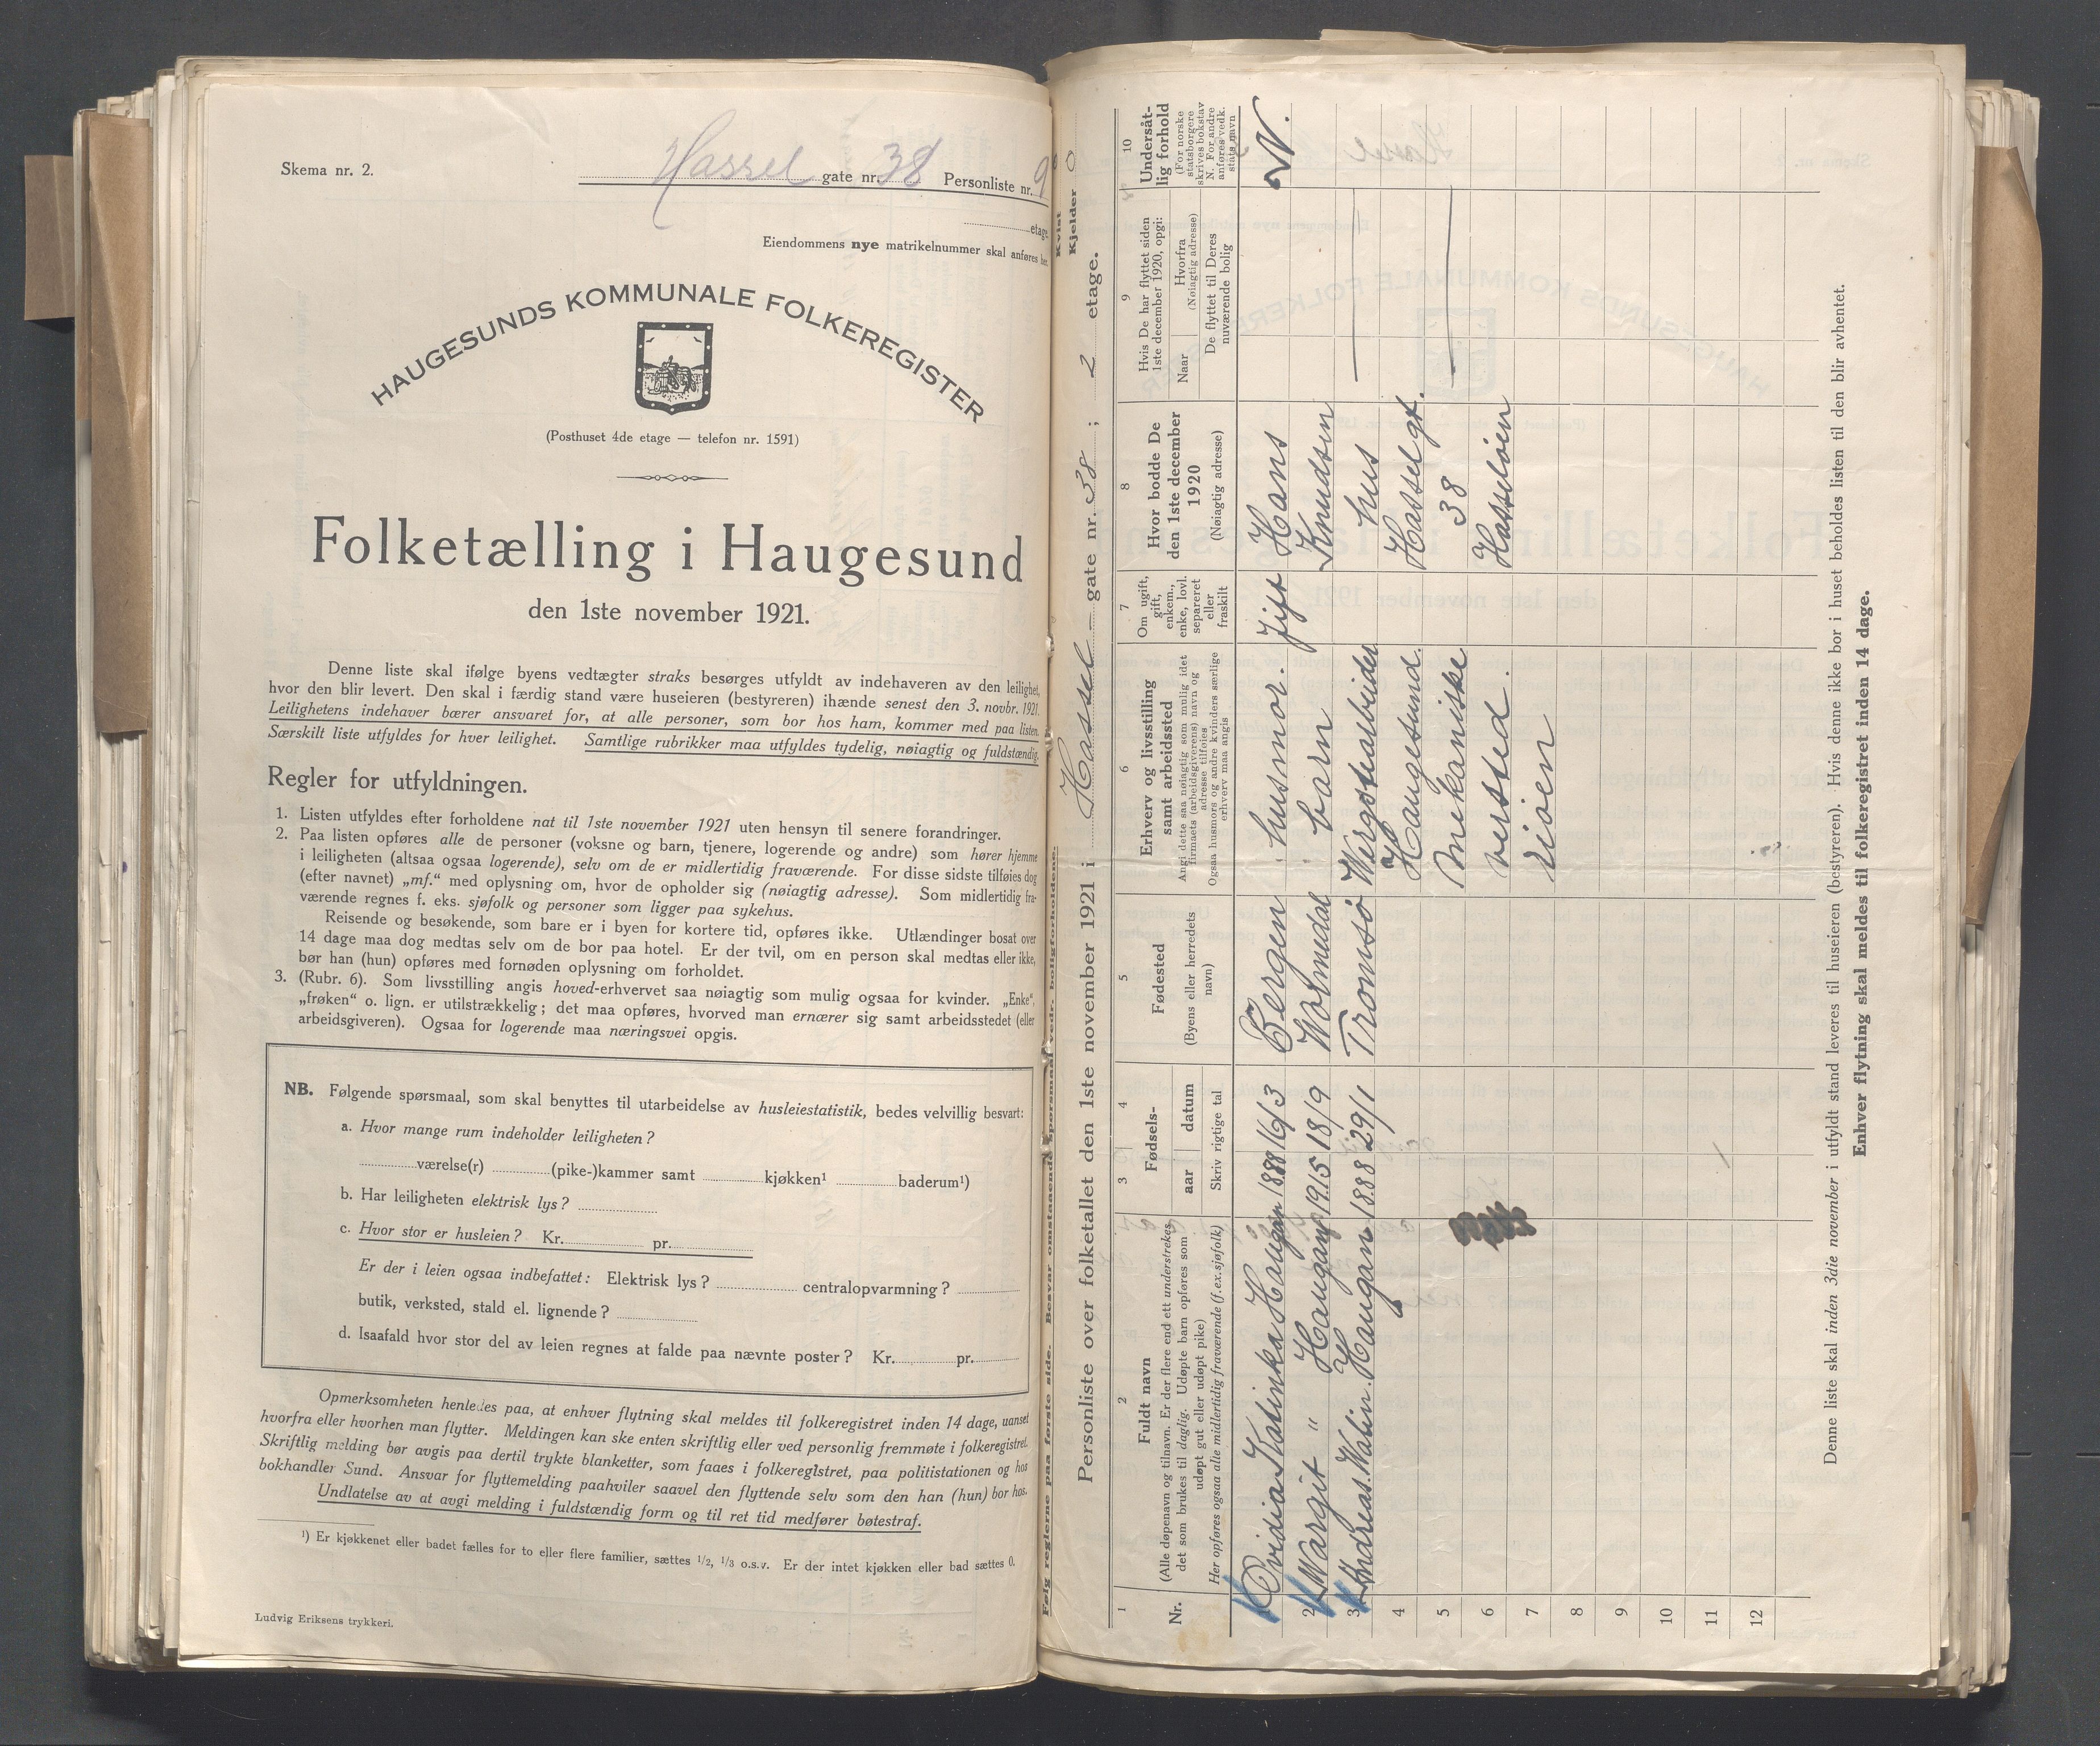 Skema nr. 2.
Hassel gate nr. 38 Personliste nr. 9
etage
Eiendommens nye matrikelnummer skal anføres her.
HAUGESUNDS KOMMUNALE FOLKEREGISTER
(Posthuset 4de etage — telefon nr. 1591)
Folketælling i Haugesund
den 1ste november 1921.
Denne liste skal ifølge byens vedtægter straks besørges utfyldt av indehaveren av den leilighet,
hvor den blir levert. Den skal i færdig stand være huseieren (bestyreren) ihænde senest den 3. novbr. 1921.
Leilighetens indehaver bærer ansvaret for, at alle personer, som bor hos ham, kommer med paa listen.
Særskilt liste utfyldes for hver leilighet. Samtlige rubrikker maa utfyldes tydelig, nøiagtig og fuldstændig.
Regler for utfyldningen.
1. Listen utfyldes efter forholdene nat til 1ste november 1921 uten hensyn til senere forandringer.
2. Paa listen opføres alle de personer (voksne og barn, tjenere, logerende og andre) som hører hjemme
i leiligheten (altsaa ogsaa logerende), selv om de er midlertidig fraværende. For disse sidste tilføies dog
(efter navnet) „mf.“ med oplysning om, hvor de opholder sig (nøiagtig adresse). Som midlertidig fra-
værende regnes f. eks. sjøfolk og personer som ligger paa sykehus.
Reisende og besøkende, som bare er i byen for kortere tid, opføres ikke. Utlændinger bosat over
14 dage maa dog medtas selv om de bor paa hotel. Er der tvil, om en person skal medtas eller ikke,
bør han (hun) opføres med fornøden oplysning om forholdet.
3. (Rubr. 6). Som livsstilling angis hoved-erhvervet saa nøiagtig som mulig ogsaa for kvinder. „Enke“,
„frøken“ o. lign. er utilstrækkelig; det maa opføres, hvorved man ernærer sig samt arbeidsstedet (eller
arbeidsgiveren). Ogsaa for logerende maa næringsvei opgis.
NB. Følgende spørsmaal, som skal benyttes til utarbeidelse av husleiestatistik, bedes velvillig besvart:
a. Hvor mange rum indeholder leiligheten?
værelse(r) (pike-)kammer samt kjøkken¹ baderum¹)
b. Har leiligheten elektrisk lys?
c. Hvor stor er husleien? Kr. pr.
Er der i leien ogsaa indbefattet: Elektrisk lys? centralopvarmning?
butik, verksted, stald el. lignende?
d. Isaafald hvor stor del av leien regnes at falde paa nævnte poster? Kr. pr.
Opmerksomheten henledes paa, at enhver flytning skal meldes til folkeregistret inden 14 dage, uanset
hvorfra eller hvorhen man flytter. Meldingen kan ske enten skriftlig eller ved personlig fremmøte i folkeregistret.
Skriftlig melding bør avgis paa dertil trykte blanketter, som faaes i folkeregistret, paa politistationen og hos
bokhandler Sund. Ansvar for flyttemelding paahviler saavel den flyttende selv som den han (hun) bor hos.
Undlatelse av at avgi melding i fuldstændig form og til ret tid medfører bøtestraf.
¹) Er kjøkkenet eller badet fælles for to eller flere familier, sættes 1/2, 1/3 o.s.v. Er der intet kjøkken eller bad sættes 0.
Ludvig Eriksens trykkeri.
Følg reglerne paa første side. Besvar omstaaende spørsmaal vedr. boligforholdene.
Kvist
Kjelder 0
Personliste over folketallet den 1ste november 1921 i Hassel gate nr. 38; 2 etage.
1
Nr.
2
Fuldt navn
(Alle døpenavn og tilnavn. Er der flere end ett understrekes
det som brukes til daglig. Udøpte barn opføres som
udøpt gut eller udøpt pike)
Her opføres ogsaa alle midlertidig fraværende (f.ex.sjøfolk)
3 4
Fødsels-
aar datum
Skriv rigtige tal
5
Fødested
(Byens eller herredets
navn)
6
Erhverv og livsstilling
samt arbeidssted
Angi dette saa nøiagtig som mulig idet
firmaets (arbeidsgiverens) navn og
adresse tilføies
Ogsaa husmors og andre kvinders særlige
erhverv maa angis
7
Om ugift,
gift,
enkem.,
enke, lovl.
separeret
eller
fraskilt
8
Hvor bodde De
den 1ste december
1920
(Nøiagtig adresse)
9
Hvis De har flyttet siden
1ste december 1920, opgi:
Naar
Hvorfra
(Nøiagtig adresse)
De flyttet til Deres
nuværende bolig
10
Undersåt-
lig forhold
(For norske
statsborgere
skrives bokstav
N. For andre
anføres vedk.
stats navn
1 Ovidia Katinka Haugan 1888 16/3 Bergen husmor. gift Hans N.
2 Margit " Haugan 1915 18/9 barn Knudsen
3 Andreas. Haugan 1888 29/1 Tromsö hus
4 Haugesund. Hasselgt.
5 mekaniske 38
6 versted. Hasseløen
7
8
9
10
11
12
Denne liste skal inden 3die november i utfyldt stand leveres til huseieren (bestyreren). Hvis denne ikke bor i huset beholdes listen til den blir avhentet.
Enhver flytning skal meldes til folkeregistret inden 14 dage.